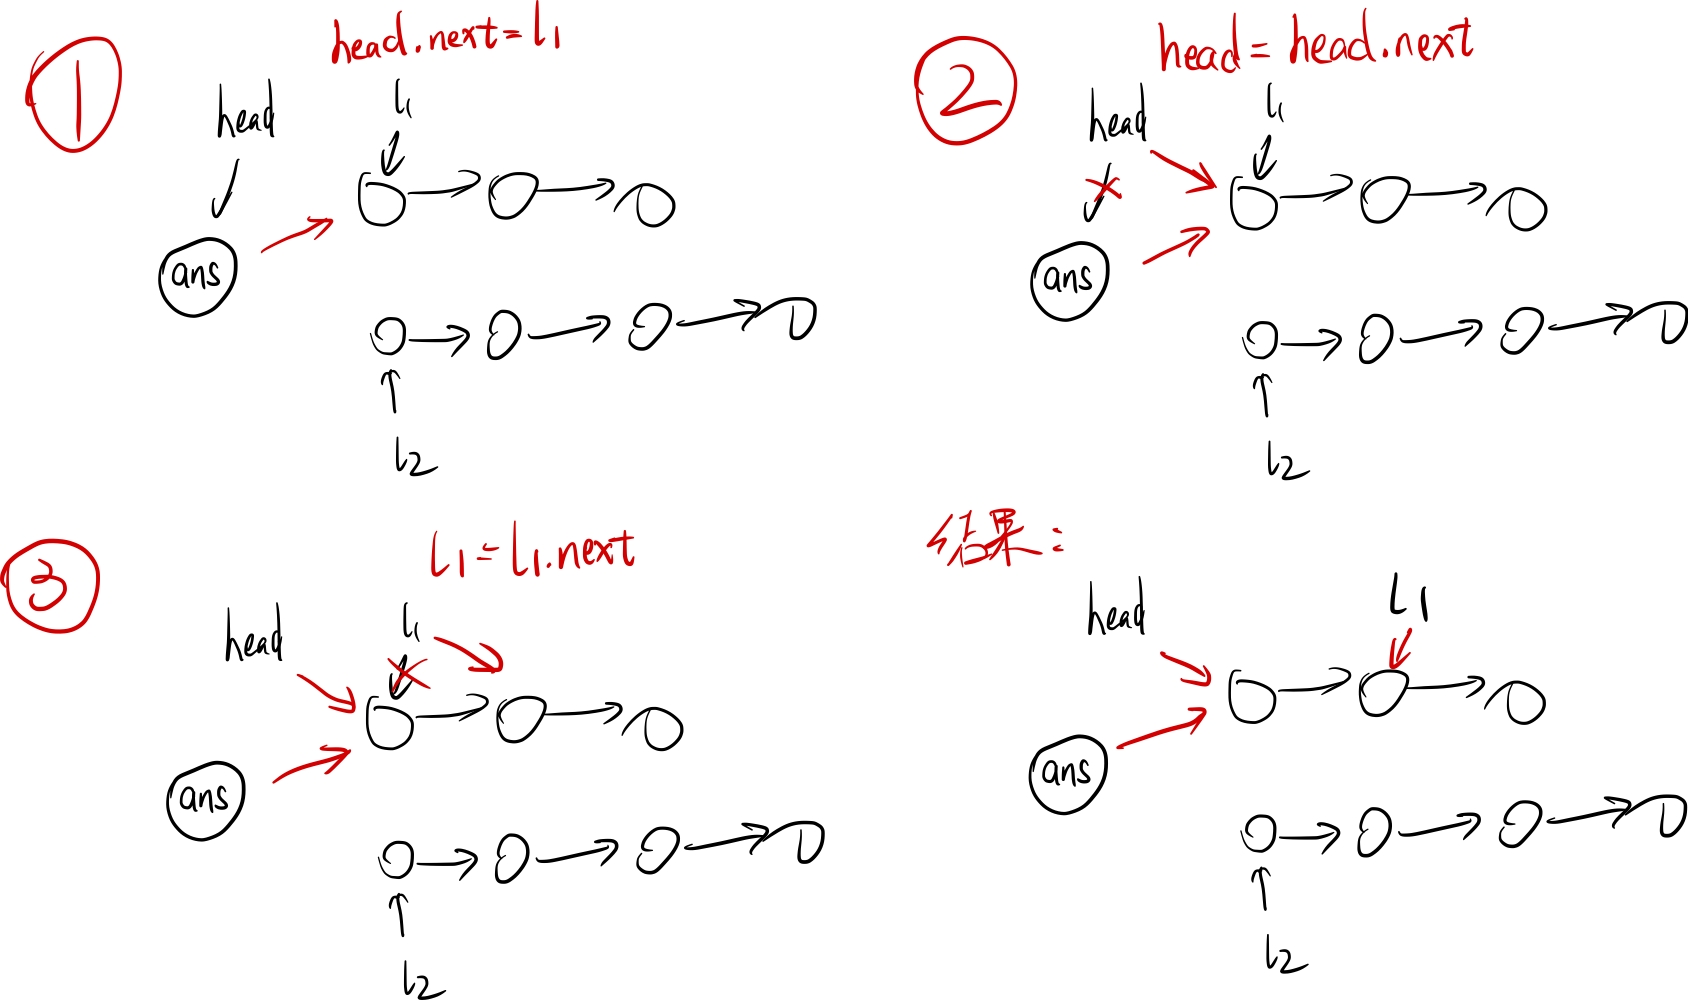 ①
head.next=l1
head
l1
ans
l2
②
head=head.next
head
l1
ans
l2
③
L1=L1.next
head
l1
ans
l2
结果：
head
L1
ans
l2